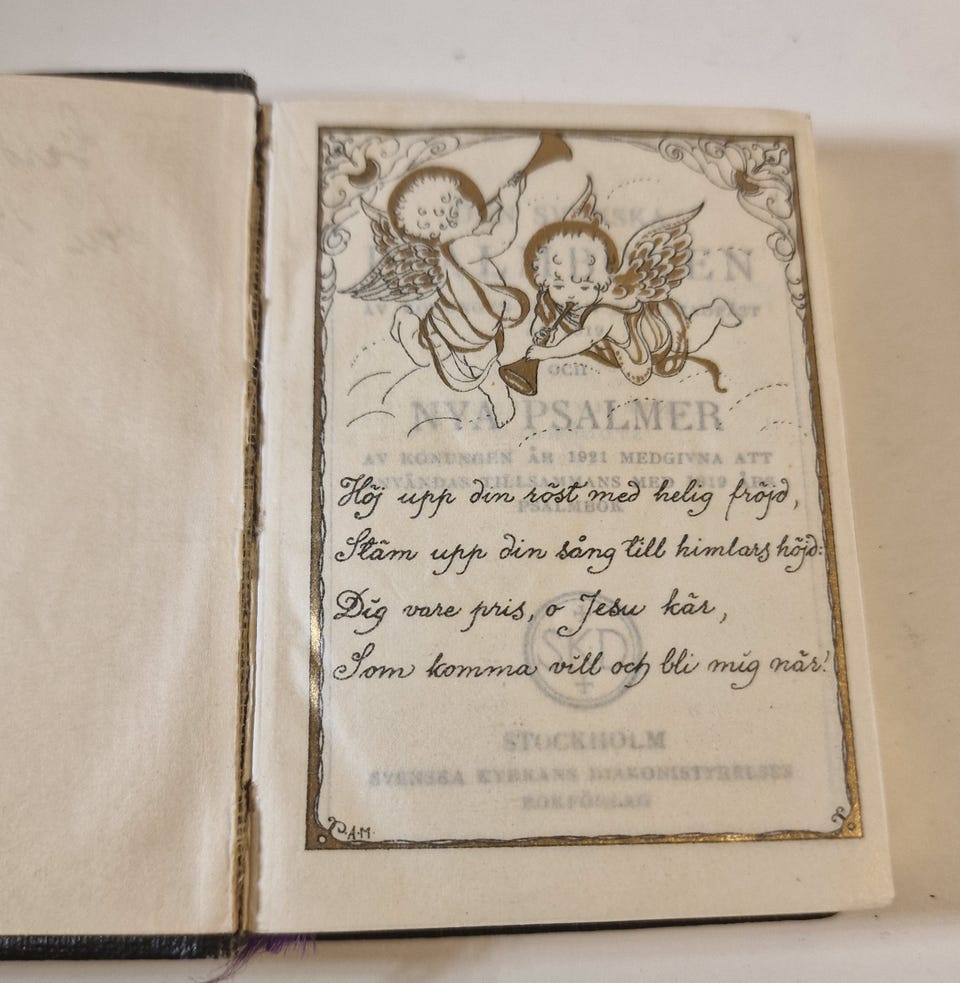 Höj upp din röst med helig fröjd,
Stäm upp din sång till himlars höjd:
Dig vare pris, o Jesu kär,
Som komma vill och bli mig när!
A·M·
SVENSKA
OCH
NYA PSALMER
AV KONUNGEN ÅR 1921 MEDGIVNA ATT
ANVÄNDAS TILLSAMMANS MED 1819 ÅRS
PSALMBOK
SKD
STOCKHOLM
SVENSKA KYRKANS DIAKONISTYRELSES
BOKFÖRLAG